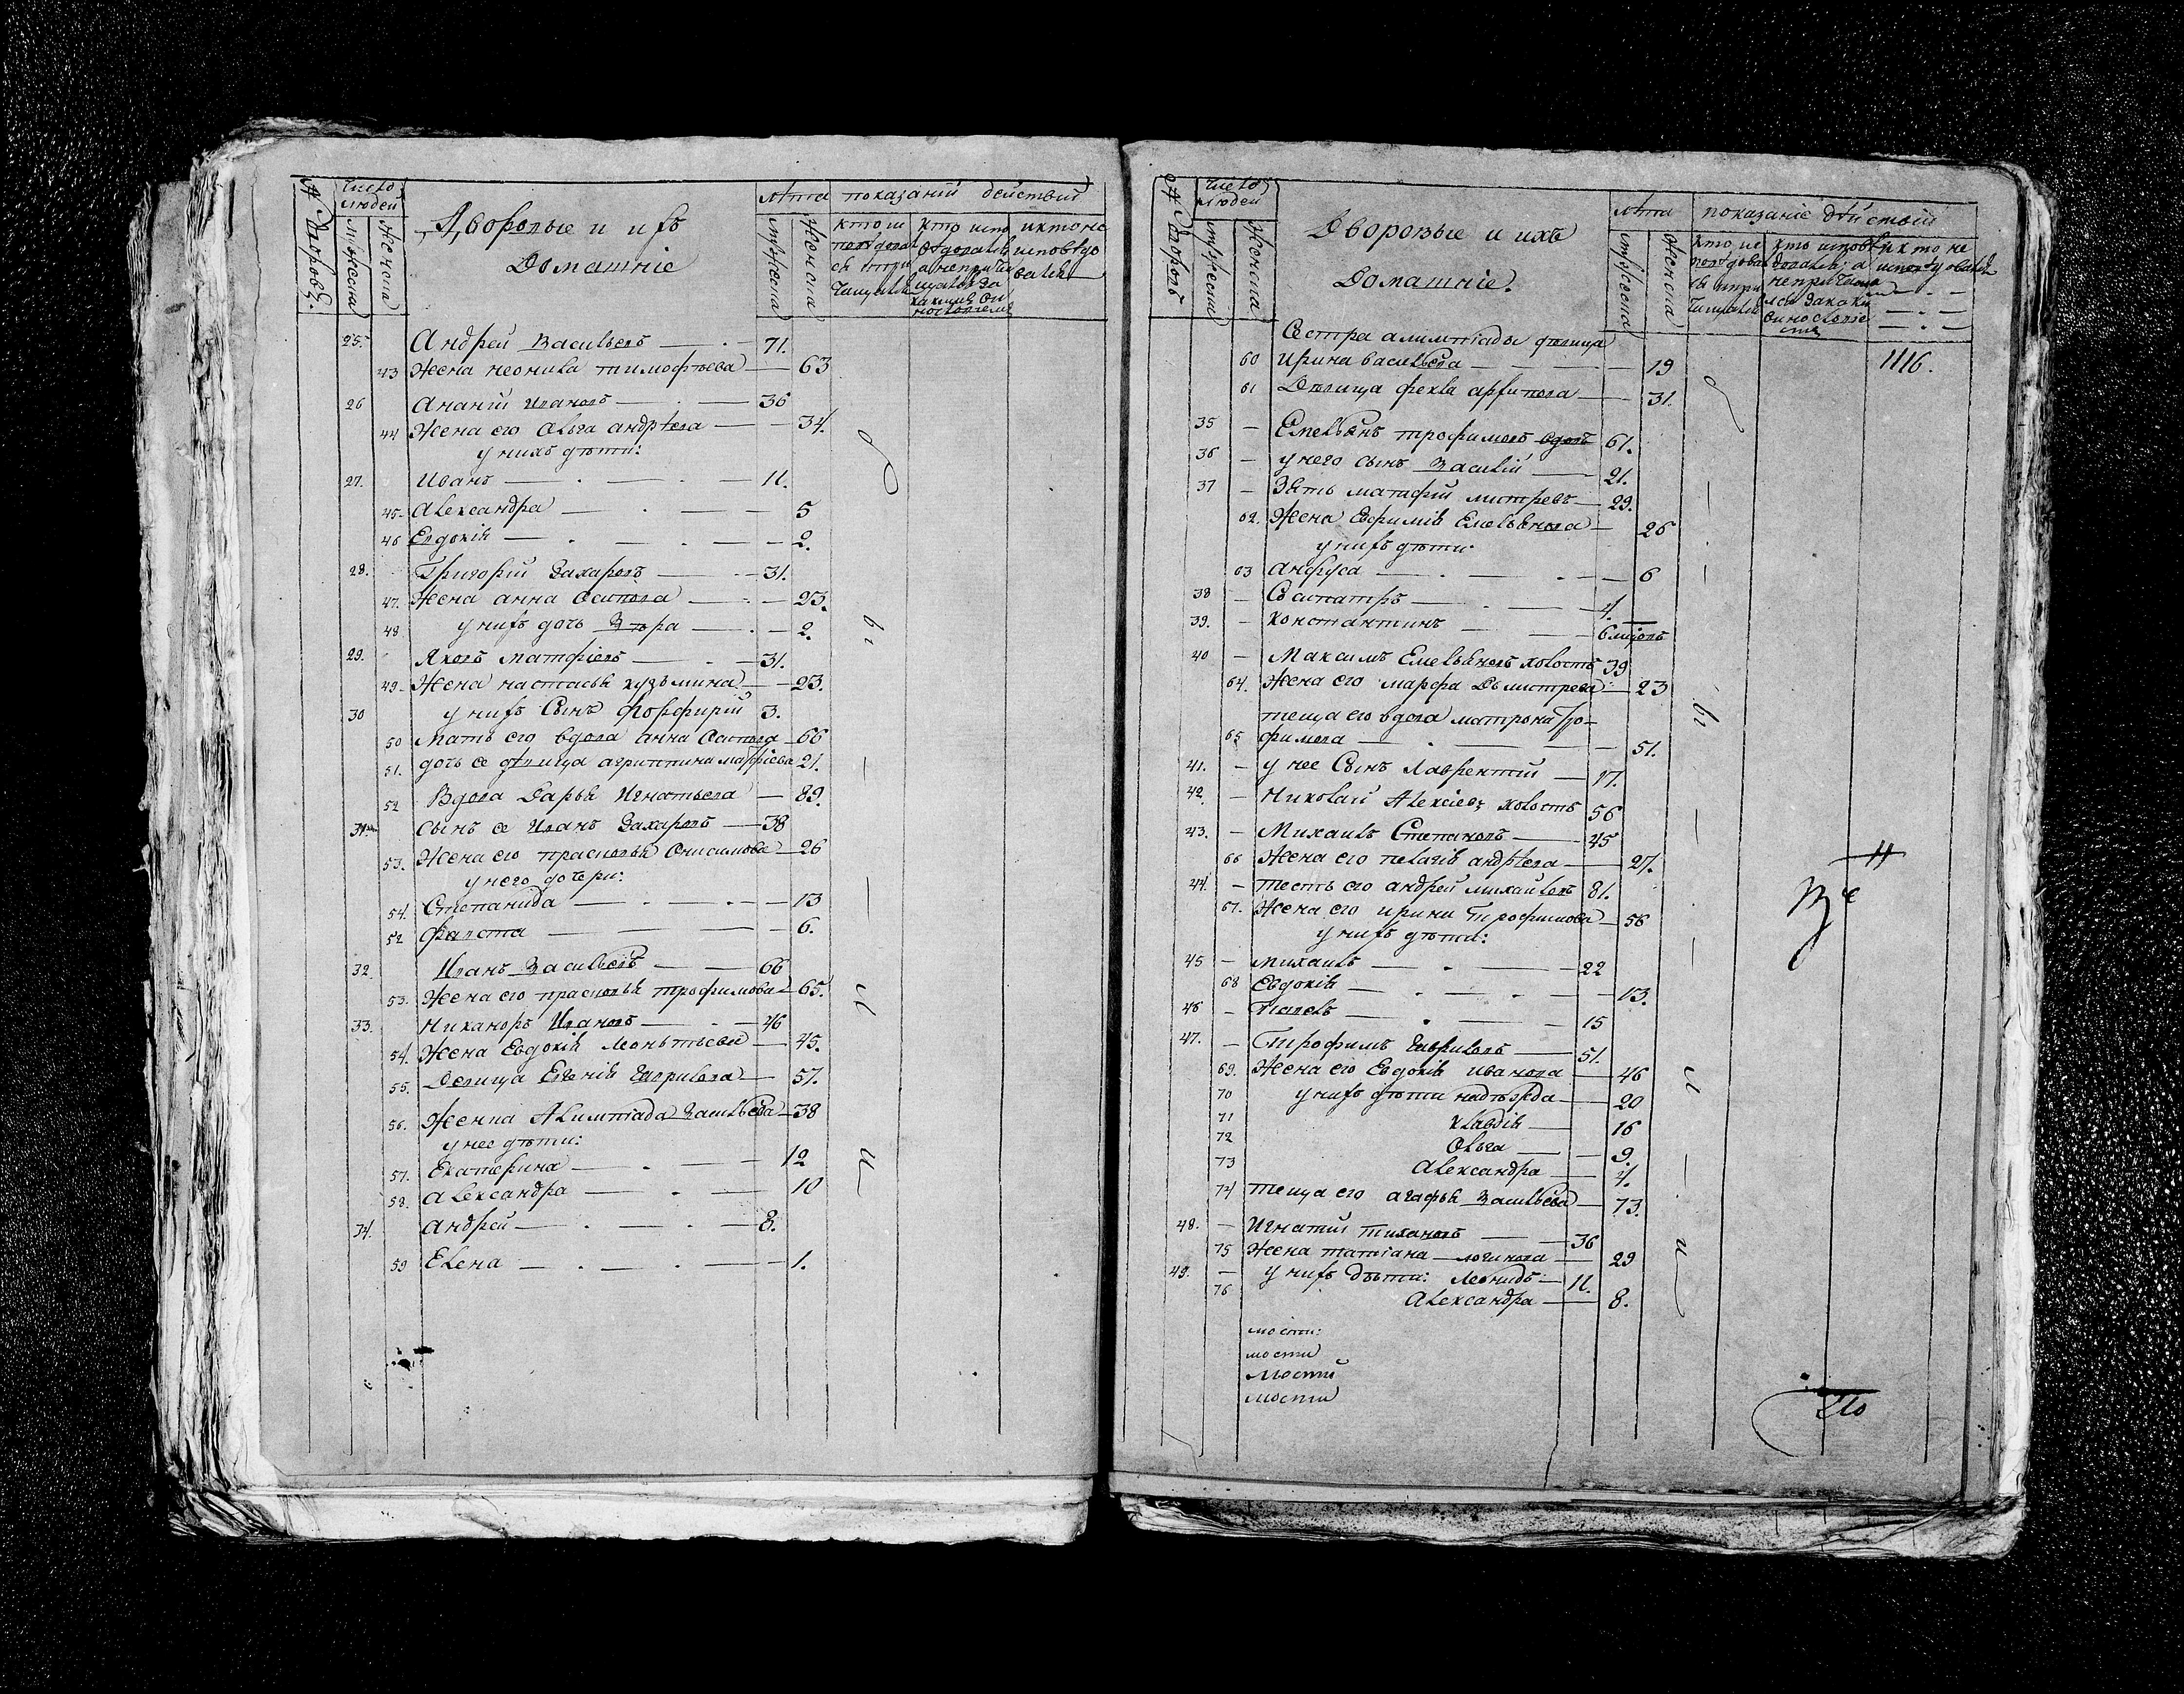 № дворовъ.
Число людей
мужеска
женска
Дворовые и ихъ
Домашніе
Лѣта
мужеска
женска
показаній действій
кто исповѣдовался и причащался
кто исповѣдовался а непричащался и за какимъ винословіемъ
и кто не исповѣдовался
25. Андрей Васильевъ — 71.
43 Жена неонила тимофѣева — 63
26 Ананій Ивановъ — 36
44 Жена его Ольга андрѣева — 34.
у нихъ дѣти:
27. Иванъ — 11.
45 Александра — 5
46 Евдокія — 2.
28. Григорій Захаровъ — 31.
47. Жена анна Осипова — 23.
48 у нихъ дочь Вѣра — 2.
29. Яковъ Матфіевъ — 31.
49 Жена настасья кузьмина — 23.
30 у нихъ Сынъ Порфирій 3.
50 Мать его вдова анна Осипова 66
51. дочь ее дѣвица агриппина матфіева 21.
52 Вдова Дарья Игнатьева — 89.
31 Сынъ ее Иванъ Захаровъ — 38
53. Жена его прасковья Онисимова — 26
у него дочери:
54. Степанида — 13
52 Фавста — 6.
32 Иванъ Васильевъ — 66
53. Жена его прасковья трофимова 65.
33. Никаноръ Ивановъ — 46
54. Жена Евдокія Леонтьева — 45.
55. Девица Евгенія Гаврилова — 57.
56. Женка Алимпіада Васильева 38
у нее дѣти:
57. Екатерина — 12
58. Александра — 10
34. андрей — 8.
59 Елена — 1.
№ дворовъ
Число людей
мужеска
женска
Дворовые и ихъ
Домашніе.
Лѣта
мужеска
женска
показаніе дѣйствій
кто исповѣдовался и причащался
кто исповѣдовался а непричащался и за какимъ винословіемъ
и кто не исповѣдовался
Сестра алимпіады дѣвица
60 Ирина васильева — 19
1116.
61 Дѣвица фекла архипова — 31.
35 — Емельянъ трофимовъ вдовъ 61.
36 — у него сынъ Василій — 21.
37 — Зять матфій митревъ — 29.
62. Жена Евфимія Емельянова — 26
у нихъ дѣти:
63 Анфуса — 6
38 — Сосипатръ — 4.
39. — Константинъ — 6 мцовъ
40 — Максимъ Емельяновъ холостъ 39
64. Жена его марфа Дьмитрева 23
теща его вдова матрона Тро-
65 фимова — 51.
41. — у нее Сынъ Лаврентій — 17.
42. — Николай Алексіевъ холостъ 56
43. — Михаилъ Степановъ — 45
66 Жена его пелагія андрѣева — 27.
44. — тесть его андрей михайловъ 81.
67. Жена его ирина Трофимова — 56
у нихъ дѣти:
45 — Михаилъ — 22
68 Евдокія — 13.
46 — Павелъ — 15
47. — Трофимъ Гавриловъ — 51.
69. Жена его Евдокія иванова — 46
70 у нихъ дѣти надѣжда — 20
71 клавдія — 16
72 Ольга — 9.
73 Александра — 4.
74 теща его агафья Васильева — 73.
48. — Игнатій тихановъ — 36
75 Жена татіана логинова — 29
49. — у нихъ дѣти: Леонидъ — 11.
76 Александра — 8.
мости:
мости
мости
мости